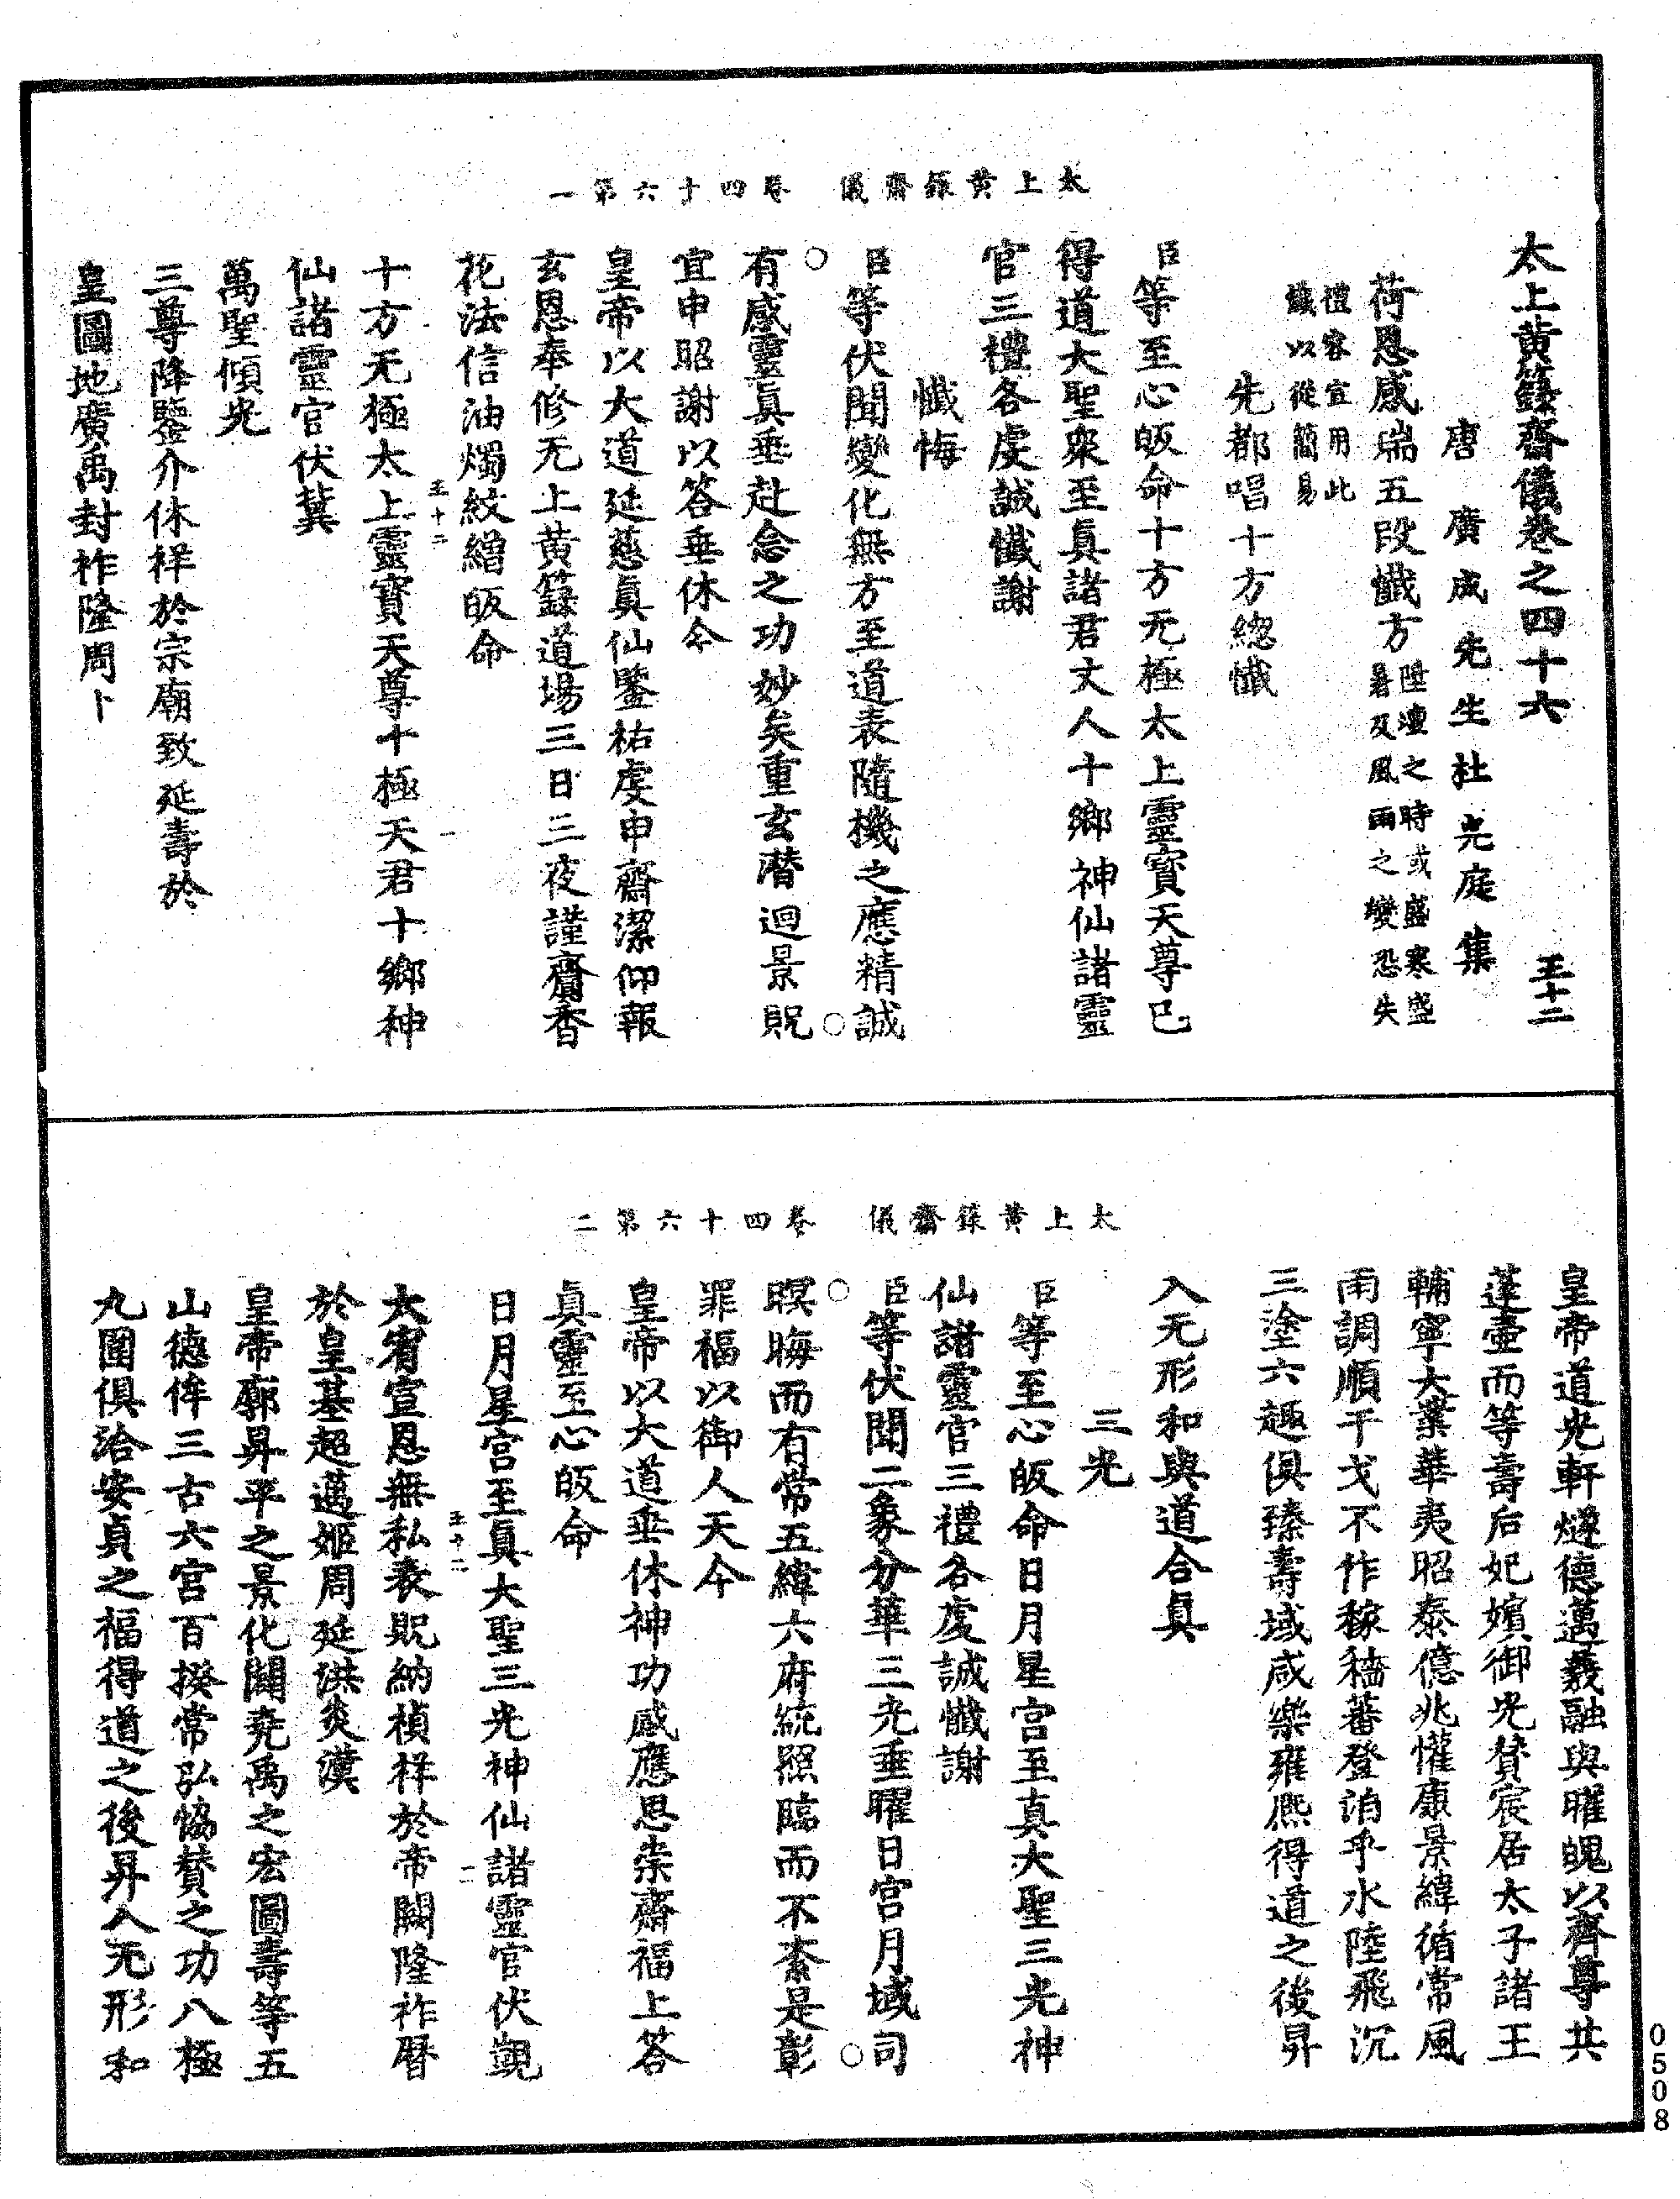 太上黃籙齋儀　卷四十六第一
太上黃籙齋儀卷之四十六　王十二
唐廣成先生杜光庭集
荷恩感瑞五段懺方陞壇之時或盛寒盛暑及風雨之變恐失
禮容宜用此懺以從簡易
先都唱十方總懺
臣等至心皈命十方无極太上靈寶天尊已
得道大聖衆至眞諸君丈人十鄉神仙諸靈
官三禮各虔誠懺謝
懺悔
臣等伏聞變化無方至道表隨機之應精誠
有感靈眞垂赴念之功妙矣重玄潛迴景貺
宜申昭謝以答垂休今
皇帝以大道延慈眞仙鑒祐虔申齋潔仰報
玄恩奉修无上黃籙道場三日三夜謹齎香
花法信油燭紋繒皈命
王十二　一
十方无極太上靈寶天尊十極天君十鄉神
仙諸靈官伏冀
萬聖傾光
三尊降鑒介休祥於宗廟致延壽於
皇圖地廣禹封祚隆周卜
太上黃籙齋儀　卷四十六第二
皇帝道光軒燧德邁羲融與曜魄以齊尊共
蓬壺而等壽后妃嬪御光賛宸居太子諸王
輔寧大業華夷昭泰億兆懽康景緯循常風
雨調順干戈不作稼穡蕃登洎乎水陸飛沉
三塗六趣俱臻壽域咸樂雍熙得道之後昇
入无形和與道合眞
三光
臣等至心皈命日月星宮至真大聖三光神
仙諸靈官三禮各虔誠懺謝
臣等伏聞二象分華三光垂曜日宮月域司
暝晦而有常五緯六府統照臨而不紊是彰
罪福以御人天今
皇帝以大道垂休神功感應思崇齋福上答
眞靈至心皈命
日月星宮至眞大聖三光神仙諸靈官伏覬
王十二　二
太宥宣恩無私表貺納禎祥於帝闕隆祚曆
於皇基超邁姬周延洪炎漢
皇帝廓昇平之景化闡堯禹之宏圖壽等五
山德侔三古六宮百揆常弘恊賛之功八極
九圍俱洽安貞之福得道之後昇入无形和
0508